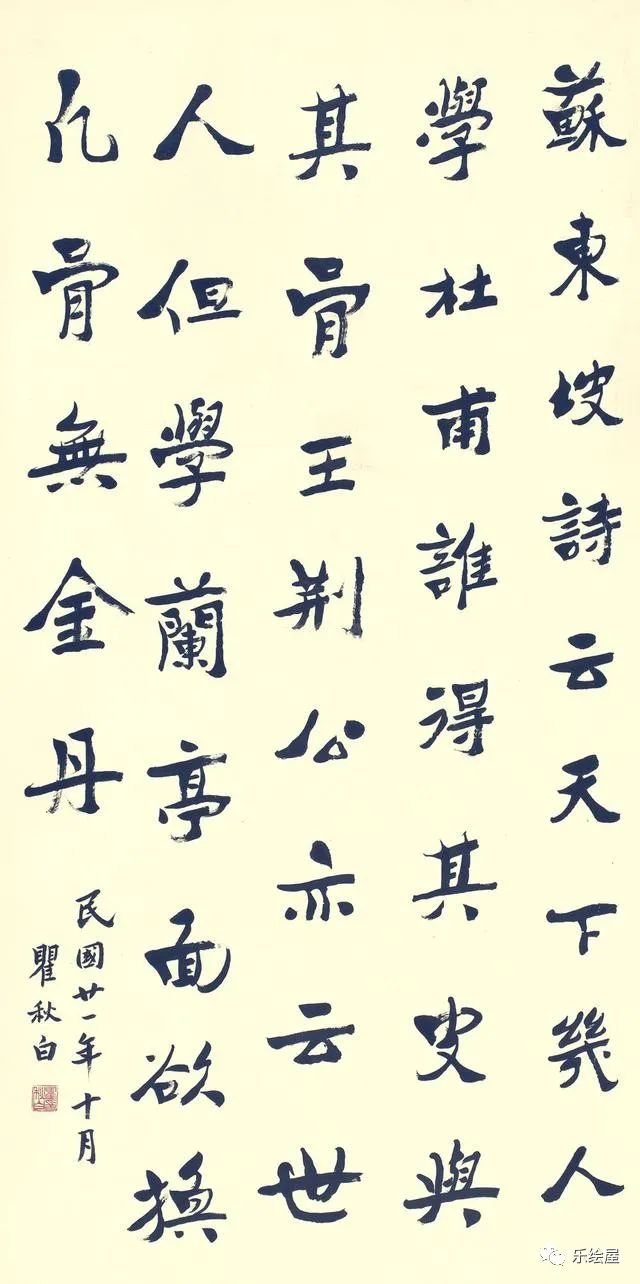 蘇東坡詩云天下幾人
學杜甫誰得其皮與
其骨王荊公亦云世
人但學蘭亭面欲換
凡骨無金丹
民國廿一年十月
瞿秋白
乐绘屋